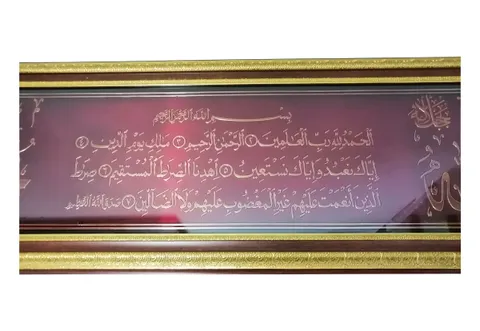 بسم الله الرحمن الرحيم
الحمد لله رب العالمين ٢ الرحمن الرحيم ٣ مالك يوم الدين ٤
إياك نعبد وإياك نستعين ٥ اهدنا الصراط المستقيم ٦ صراط
الذين أنعمت عليهم غير المغضوب عليهم ولا الضالين ٧ صدق الله العظيم